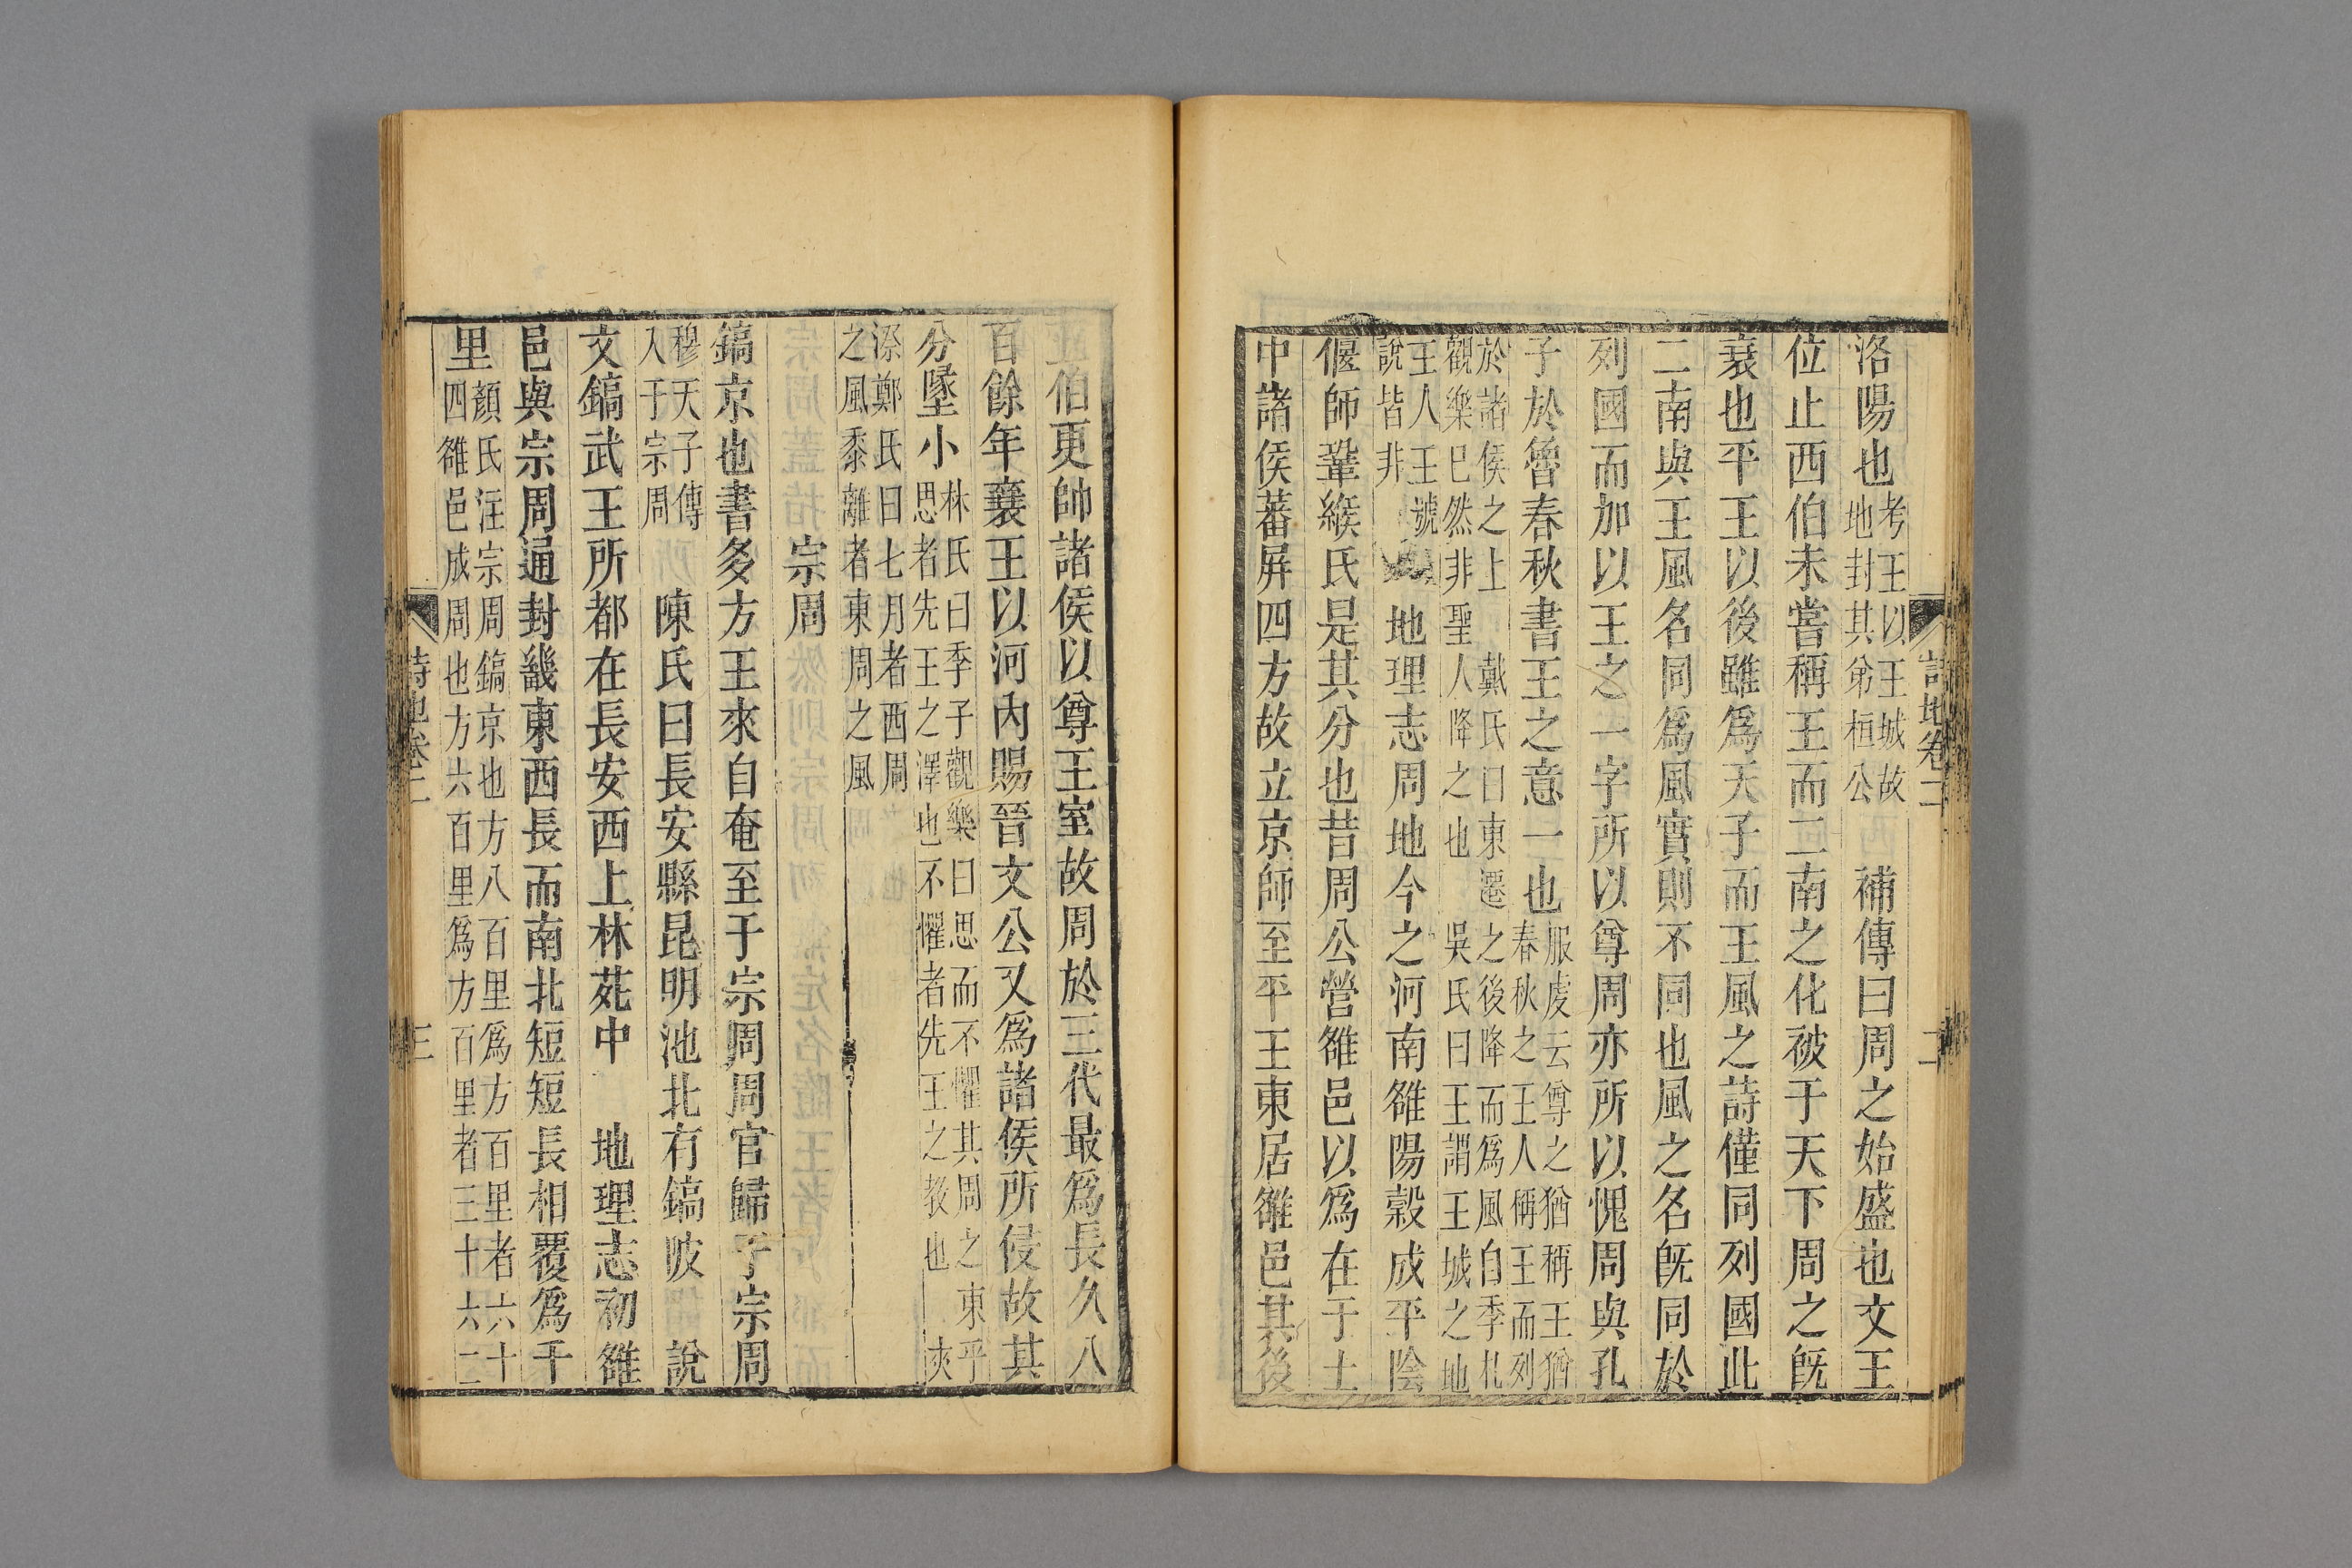 洛陽也考王以王城故地封其弟桓公　補傳曰周之始盛也文王
位止西伯未嘗稱王而二南之化被于天下周之旣
衰也平王以後雖爲天子而王風之詩僅同列國此
二南與王風名同爲風實則不同也風之名旣同於
列國而加以王之一字所以尊周亦所以愧周與孔
子於魯春秋書王之意一也服虔云尊之猶稱王猶春秋之王人稱王而列
於諸侯之上　戴氏曰東遷之後降而爲風自季札觀樂已然非聖人降之也　吳氏曰王謂王城之地
王人王號說皆非　地理志周地今之河南雒陽穀成平陰
偃師鞏緱氏是其分也昔周公營雒邑以爲在于土
中諸侯蕃屏四方故立京師至平王東居雒邑其後
詩地卷二
二
五伯更帥諸侯以尊王室故周於三代最爲長久八
百餘年襄王以河內賜晉文公又爲諸侯所侵故其
分墬小林氏曰季子觀樂曰思而不懼其周之東乎思者先王之澤也不懼者先王之教也　夾
漈鄭氏曰七月者西周之風黍離者東周之風
宗周
鎬京也書多方王來自奄至于宗周周官歸于宗周
穆天子傳入于宗周　陳氏曰長安縣昆明池北有鎬陂　說
文鎬武王所都在長安西上林苑中　地理志初雒
邑與宗周通封畿東西長而南北短短長相覆爲千
里顏氏注宗周鎬京也方八百里爲方百里者六十四雒邑成周也方六百里爲方百里者三十六二
詩地卷二
三